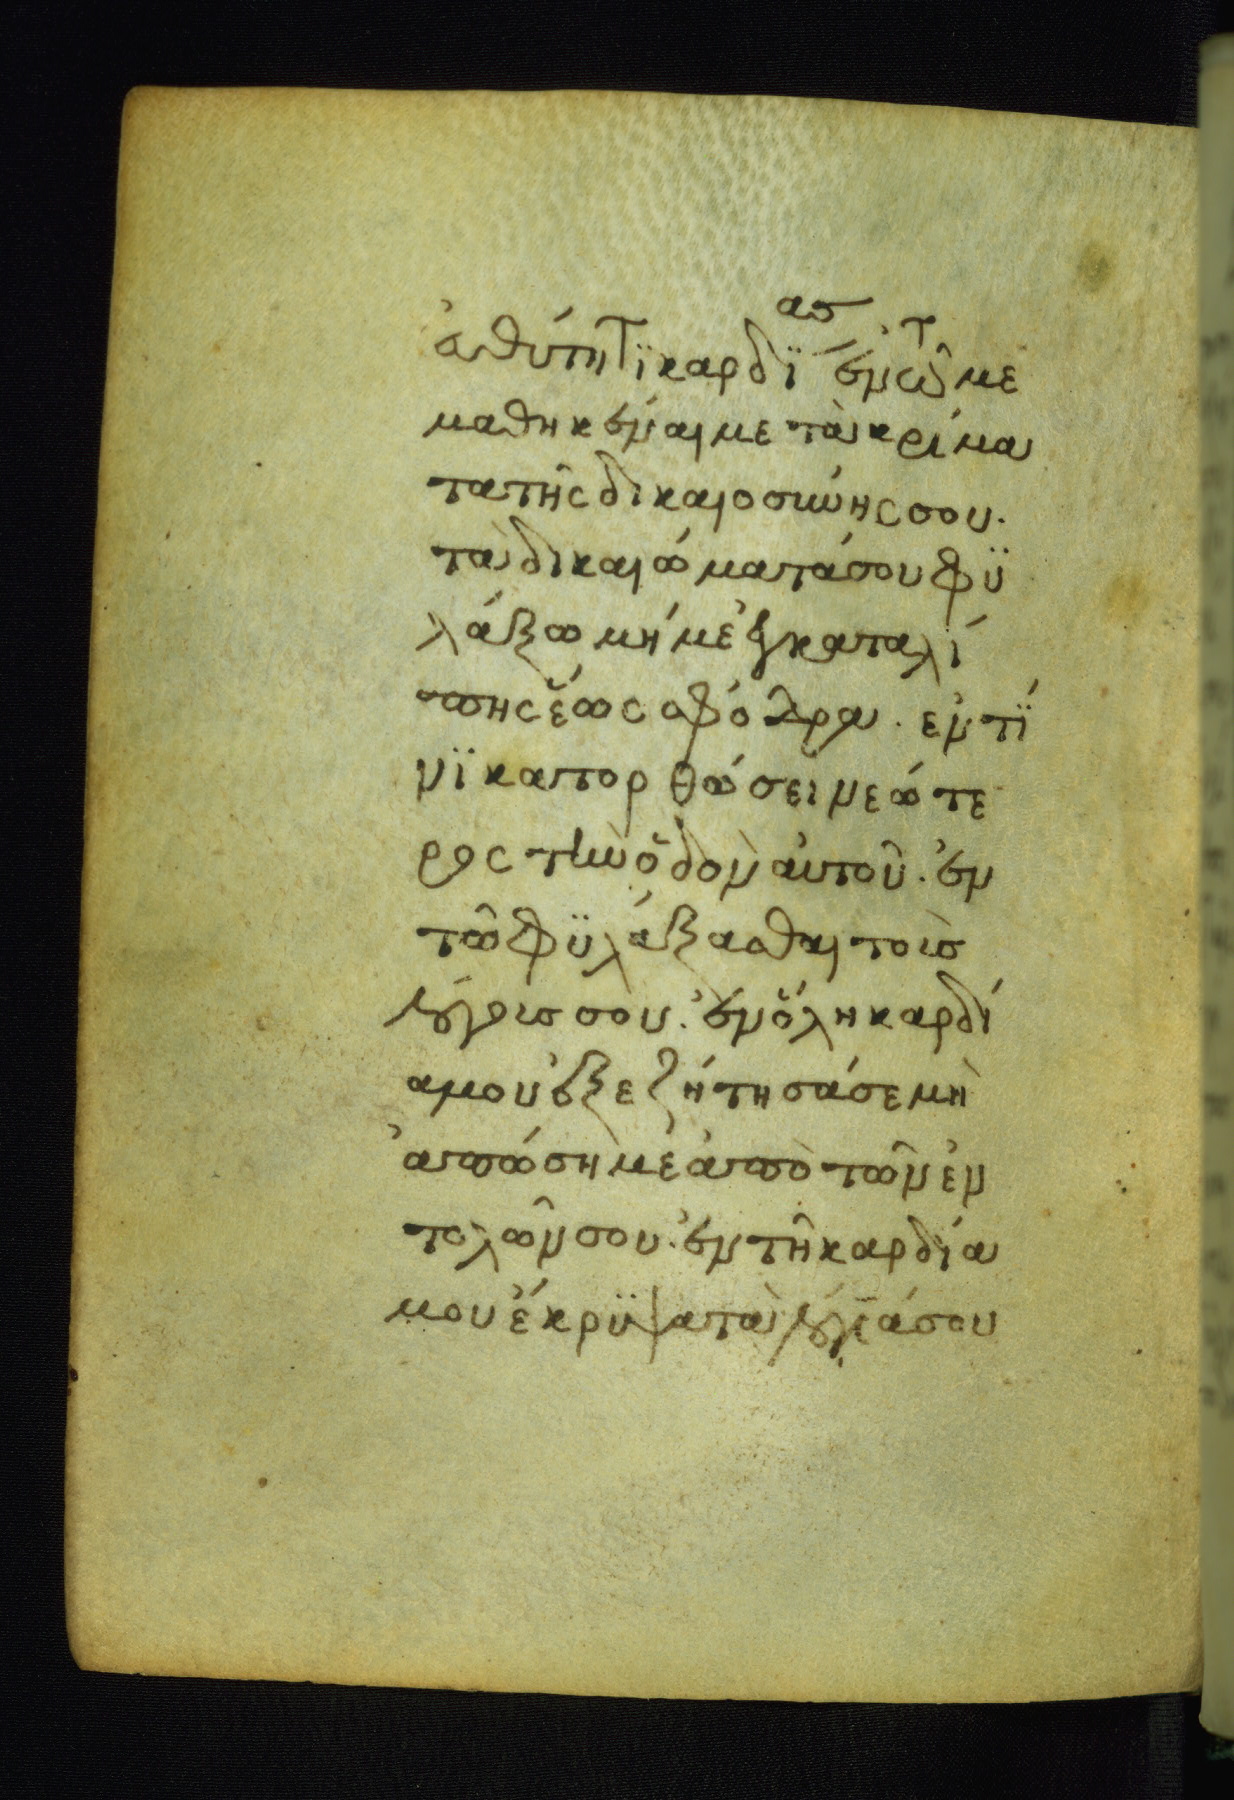 εὐθύτητϊ καρδϊας ἐν τῶ με
μαθηκέναι με τὰ κρίμα
τα τῆς δικαιοσύνης σου.
τὰ δικαιώματά σου φϋ
λάξω μή με ἐγκαταλί
πης ἕως σφόδρα. ἐν τΐ
νϊ κατορθώσει νεώτε
ρος τὴν ὁδὸν αὐτοῦ. ἐν
τῶ φϋλάξασθαι τοὺς
λόγους σου. ἐν ὅλη καρδί
α μου ἐξεζήτησά σε μὴ
ἀπώση με ἀπὸ τῶν ἐν
τολῶν σου. ἐν τῆ καρδία
μου ἔκρϋψα τὰ λόγϊά σου